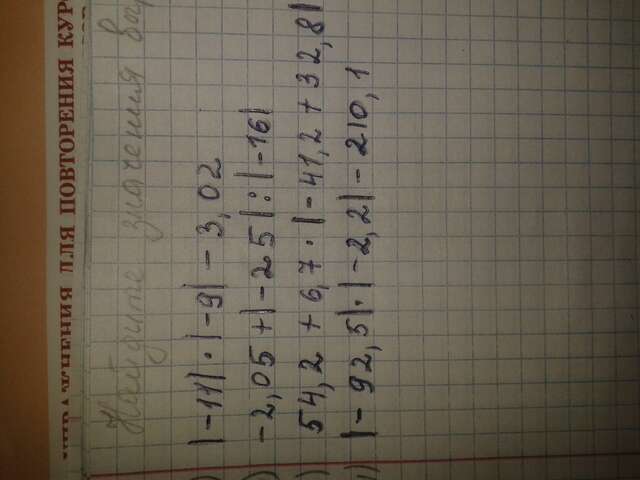 ДЛЯ ПОВТОРЕНИЯ КУРС
Найдите значения выр
|-11|·|-9|-3,02
) -2,05+|-25|:|-16|
) 54,2+6,7·|-41,2+32,8|
) |-92,5|·|-2,2|-210,1